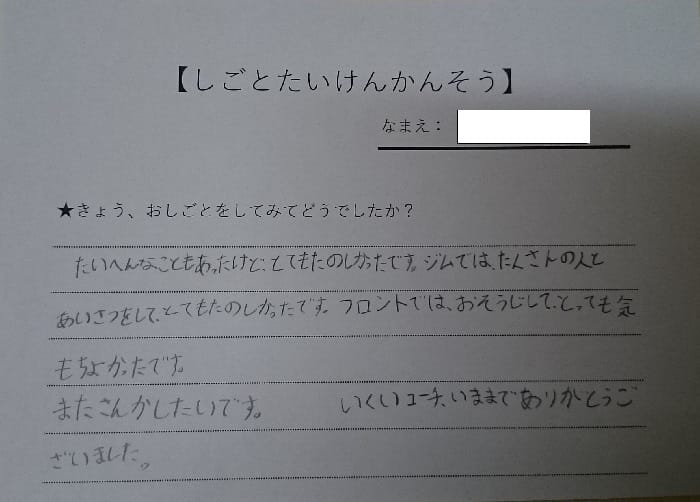 【しごとたいけんかんそう】
なまえ：
★きょう、おしごとをしてみてどうでしたか？
たいへんなこともあったけど、とてもたのしかったです。ジムでは、たくさんの人と
あいさつをして、とてもたのしかったです。フロントでは、おそうじして、とっても気
もちよかったです。
またさんかしたいです。 いくいコーチ、いままでありがとうご
ざいました。